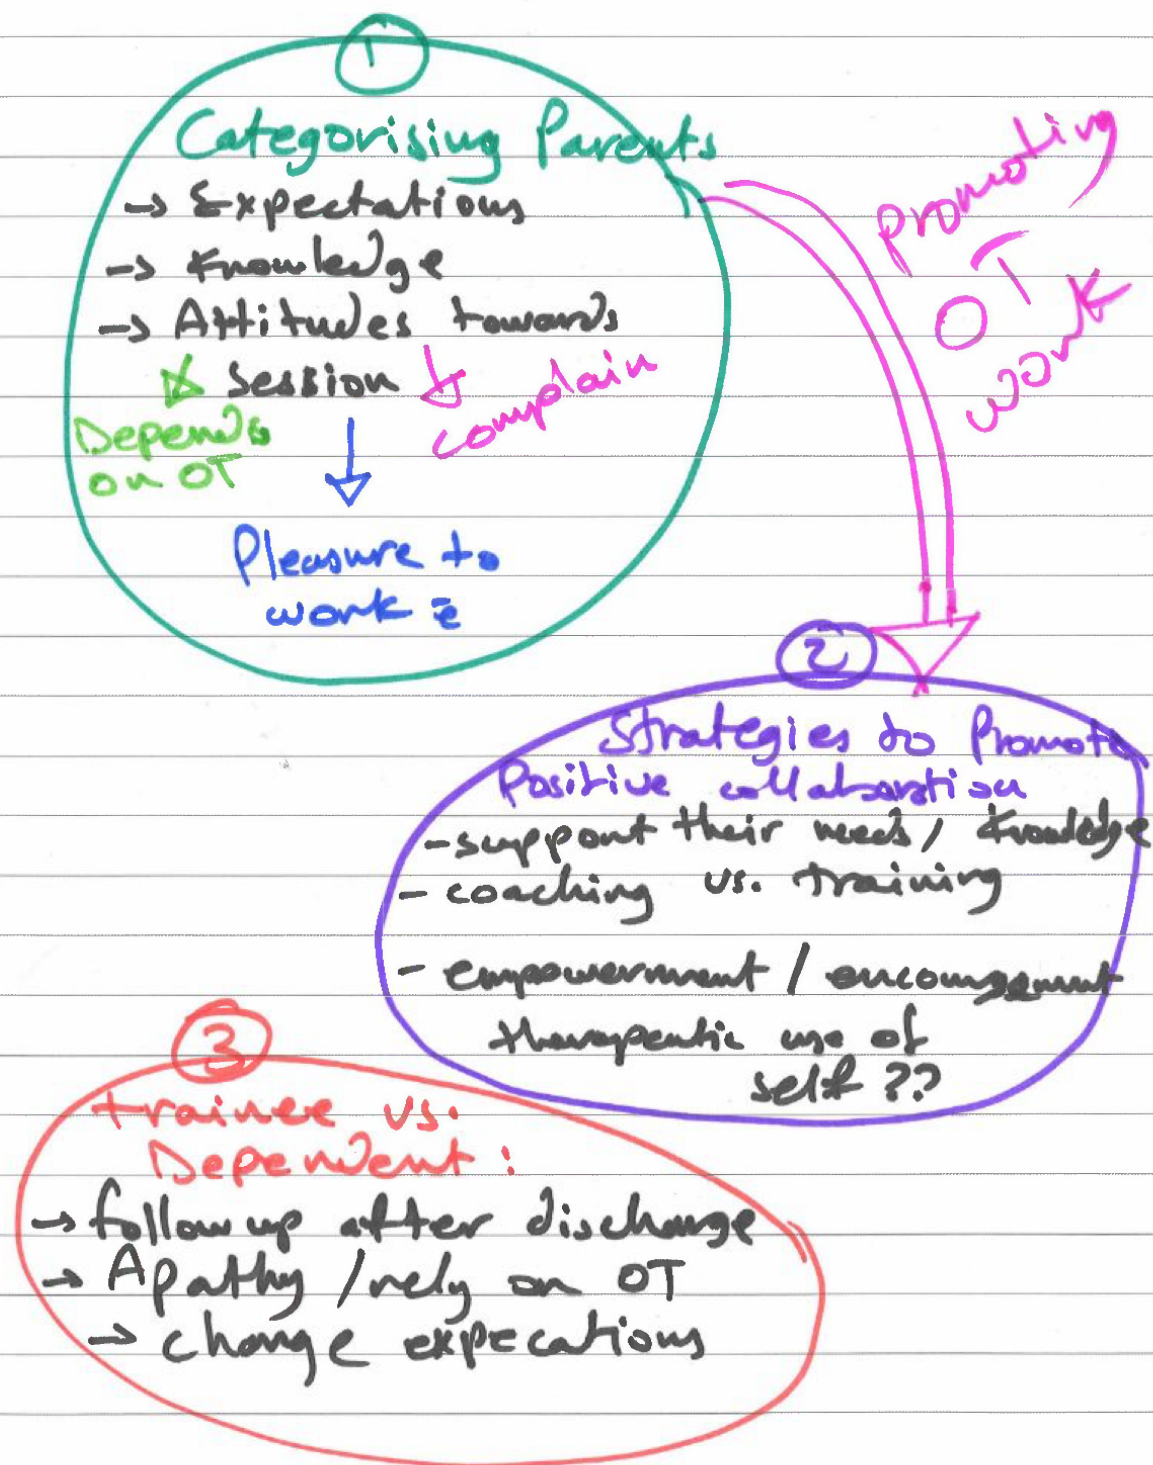 1
Categorising Parents
→ Expectations
→ Knowledge
→ Attitudes towards
session
Depends
on OT
complain
Pleasure to
work c̄
promoting
OT
work
2
Strategies to Promote
Positive collaboration
- support their needs / knowledge
- coaching vs. training
- empowerment / encouragement
therapeutic use of
self ??
3
trainee vs.
Dependent :
→ follow up after discharge
→ Apathy / rely on OT
→ change expecations